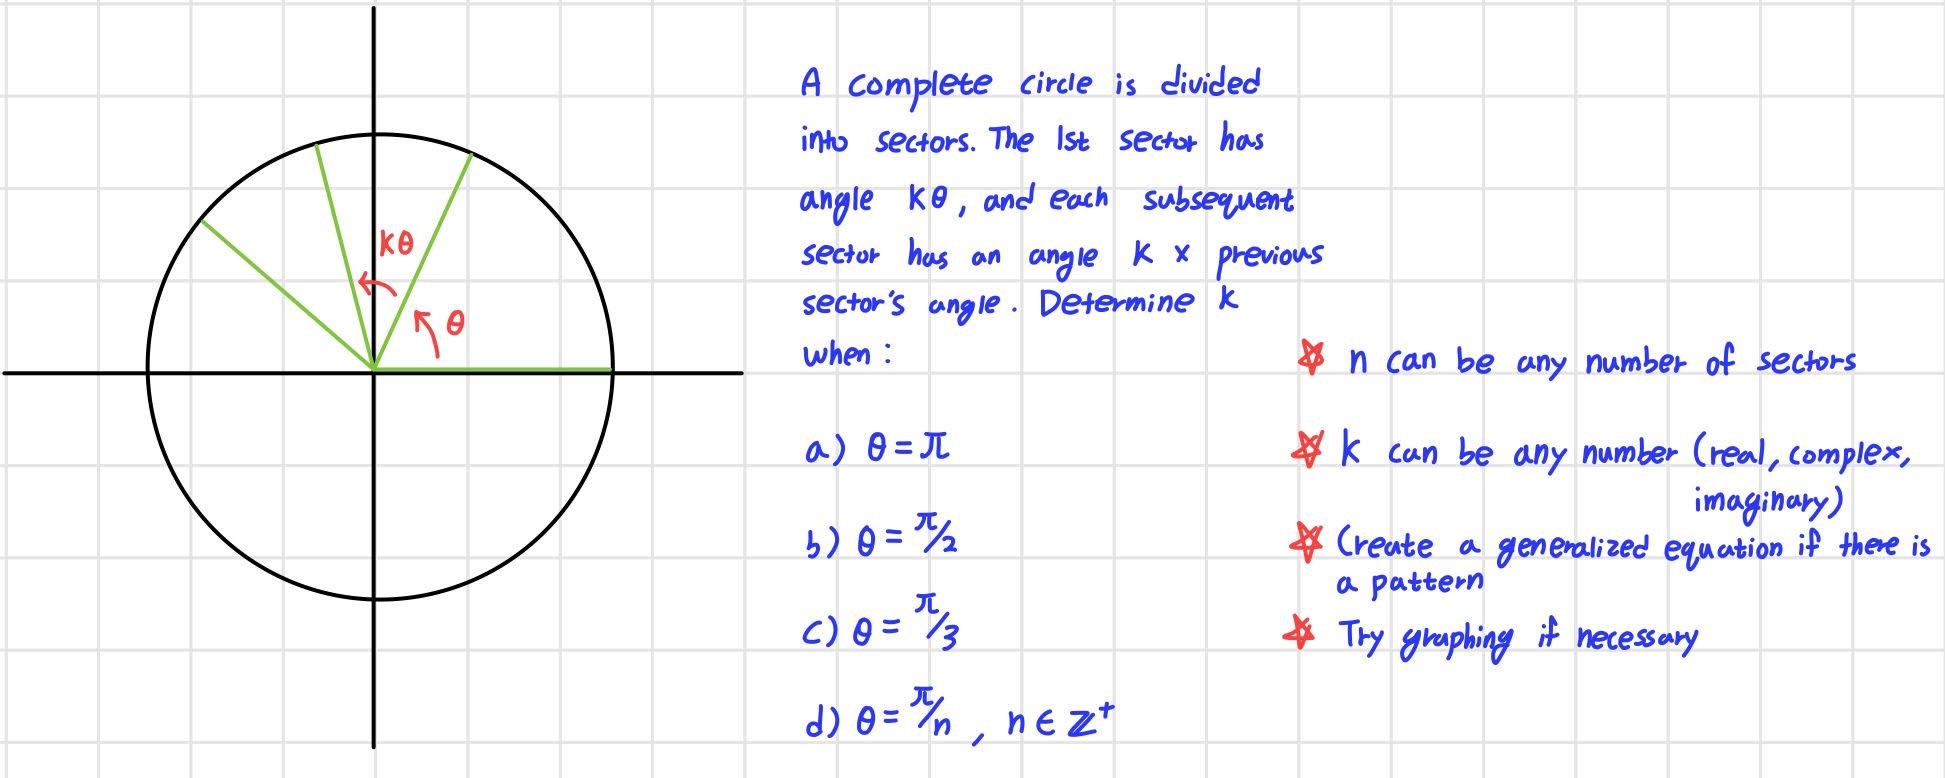 A complete circle is divided
into sectors. The 1st sector has
angle kθ, and each subsequent
sector has an angle k x previous
sector's angle. Determine k
when:
a) θ = π
b) θ = π/2
c) θ = π/3
d) θ = π/n , n ∈ ℤ⁺
kθ
θ
☆ n can be any number of sectors
☆ k can be any number (real, complex,
imaginary)
☆ Create a generalized equation if there is
a pattern
☆ Try graphing if necessary